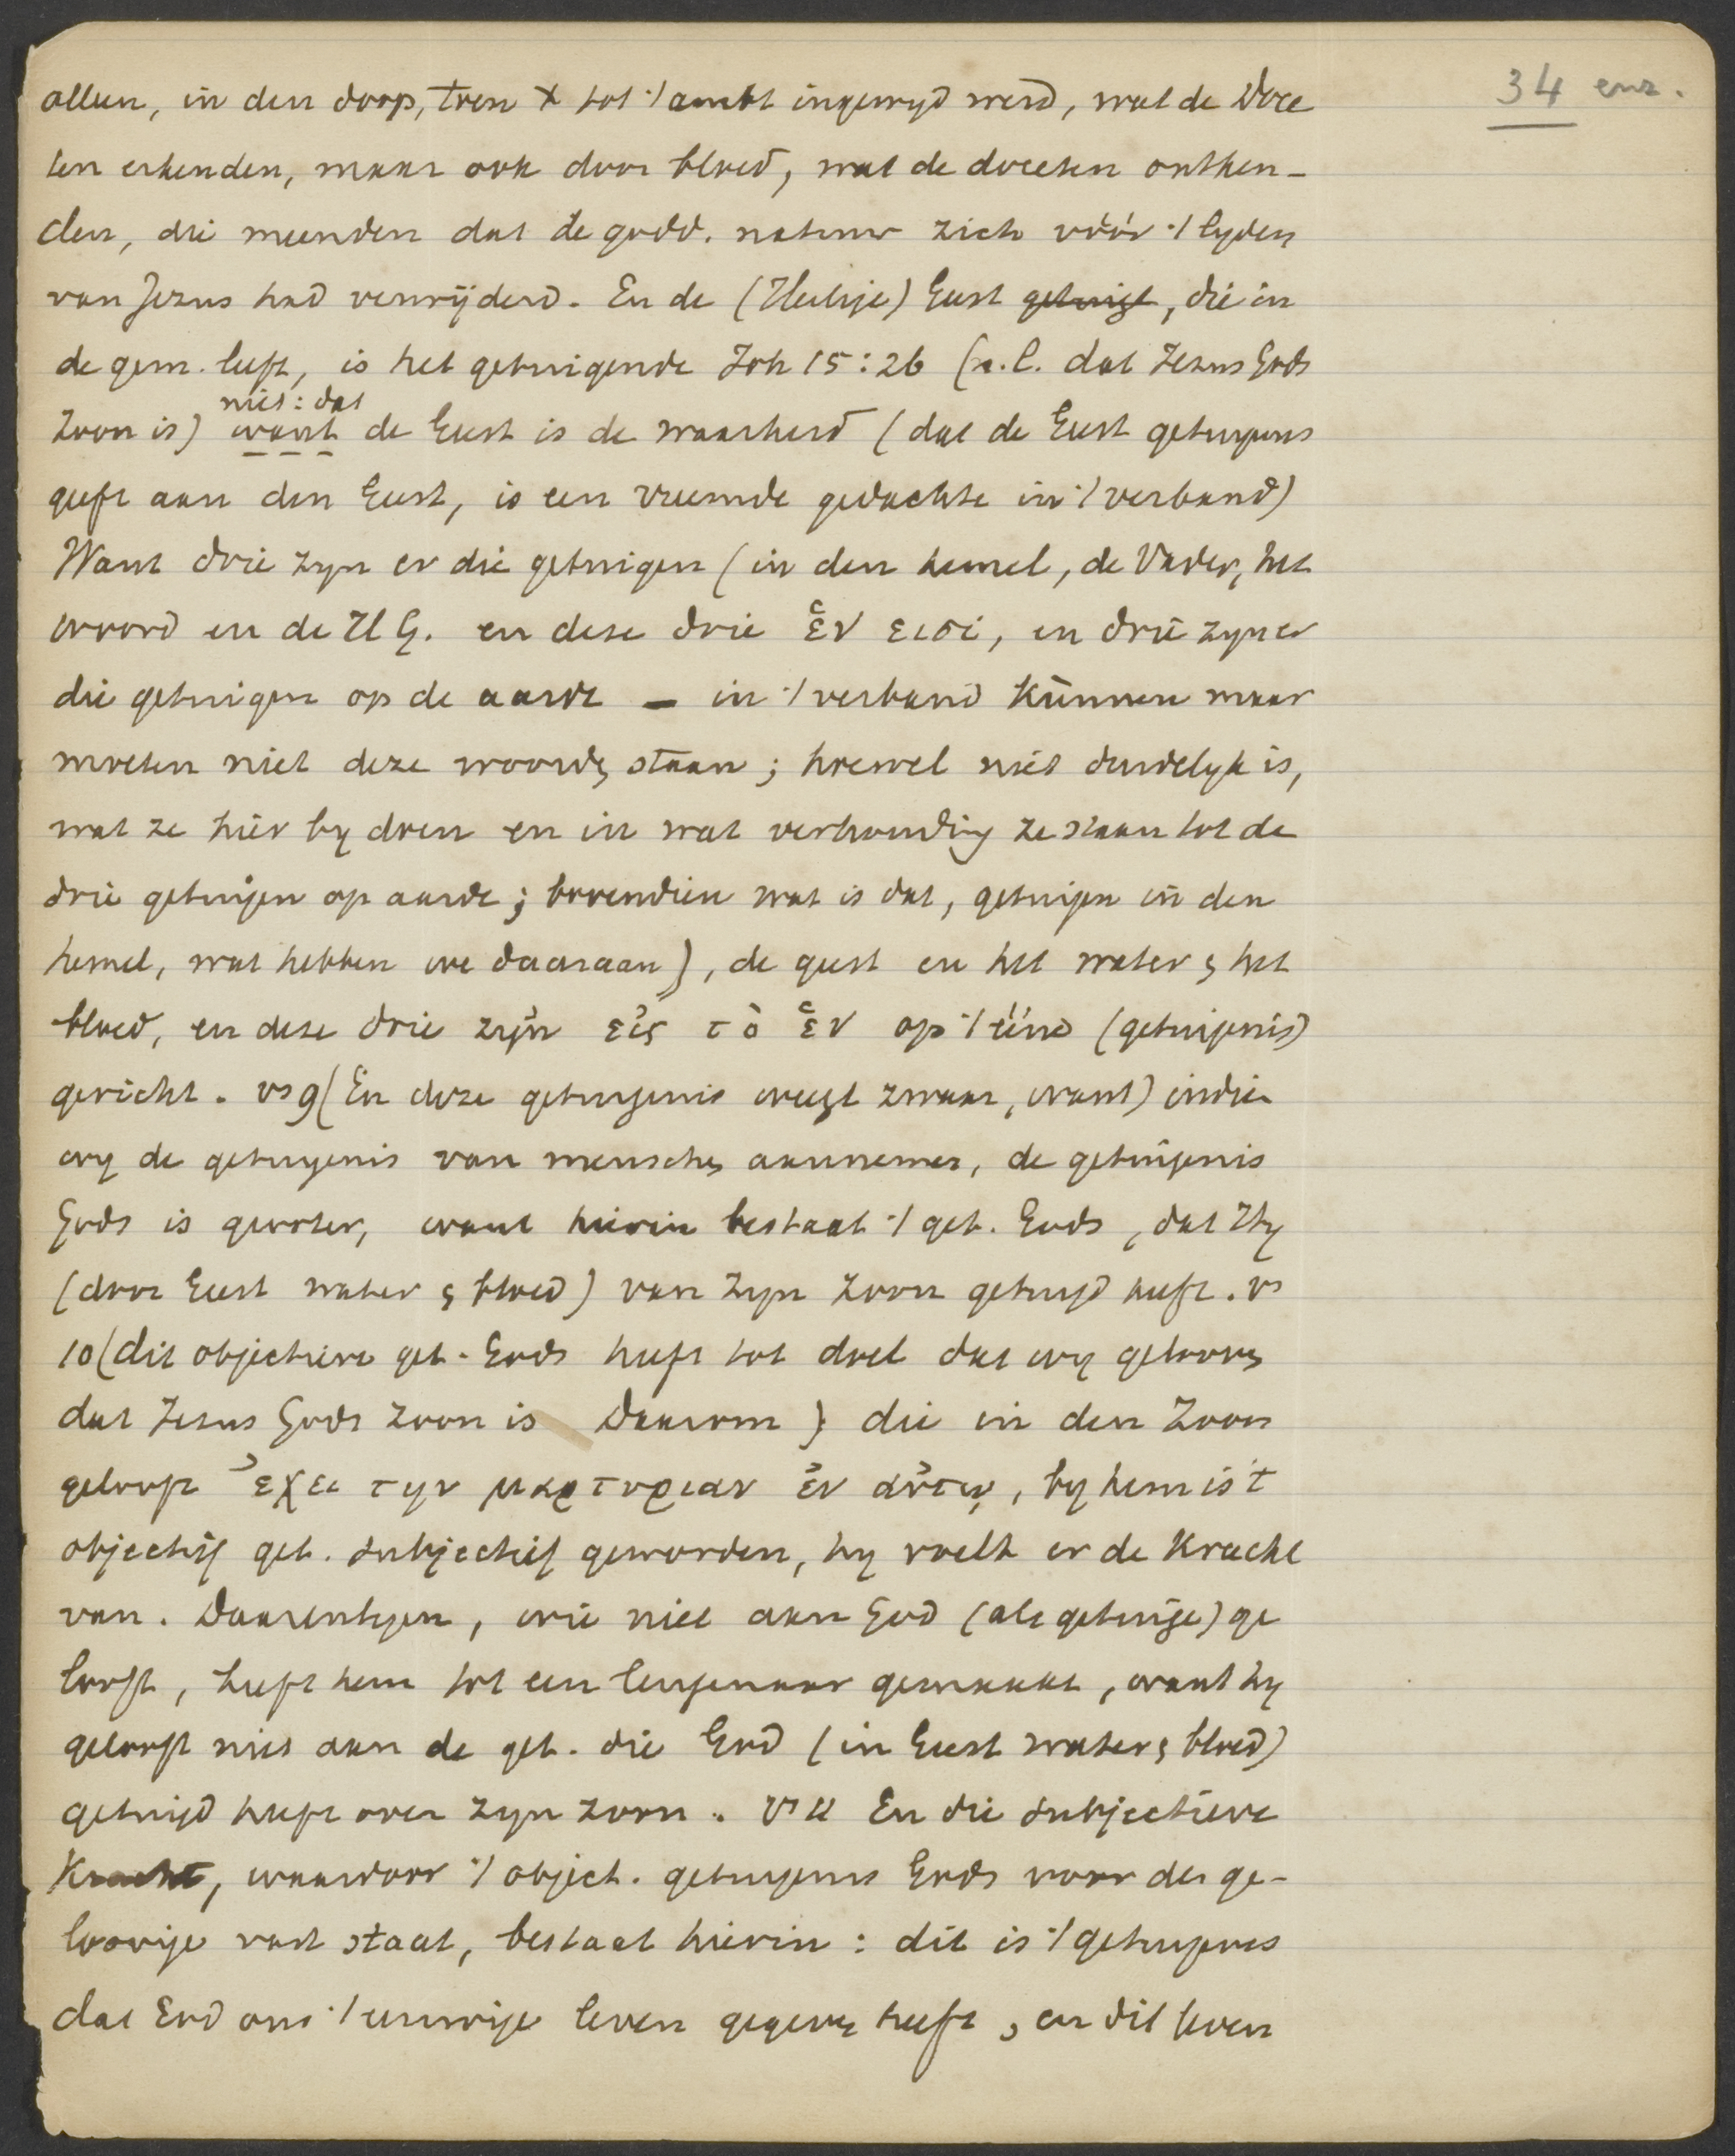 34 enz.
alleen, in den doop, toen X tot 't ambt ingewyd werd, wat de Doce
ten erkenden, maar ook door bloed, wat de doceten ontken-
den, die meenden dat de godd. natuur zich vóór 't lyden
van Jezus had verwijderd. En de (Heilige) Geest getuigt, die in
de gem. leeft, is het getuigende Joh 15:26 (n.l. dat Jezus Gods
niet: dat
Zoon is) want de Geest is de waarheid (dat de Geest getuigenis
geeft aan den Geest, is een vreemde gedachte in 't verband)
Want drie zyn er die getuigen (in den hemel, de Vader, het
woord en de H G. en deze drie ἕν εισι, en drie zyn er
die getuigen op de aarde — in 't verband kunnen maar
moeten niet deze woorden staan; hoewel niet duidelyk is,
wat ze hier by doen en in wat verhouding ze staan tot de
drie getuigen op aarde; bovendien wat is dat, getuigen in den
hemel, wat hebben we daaraan), de geest en het water & het
bloed, en deze drie zijn εἰς τὸ ἕν op 't ééne (getuigenis)
gericht. vs 9 (En deze getuigenis weegt zwaar, want) indien
wy de getuigenis van menschen aannemen, de getuigenis
Gods is grooter, want hierin bestaat 't get. Gods, dat Hy
(door Geest water & bloed) van Zyn Zoon getuigd heeft. vs
10 (dit objectieve get. Gods heeft tot doel dat wy gelooven
dat Jezus Gods Zoon is Daarom) die in den Zoon
gelooft ἔχει την μαρτυριαν ἐν αὐτῳ, by hem is 't
objectief get. subjectief geworden, hy voelt er de kracht
van. Daarentegen, wie niet aan God (als getuige) ge
looft, heeft hem tot een leugenaar gemaakt, want hy
gelooft niet aan de get. die God (in Geest water & bloed)
getuigd heeft over zyn zoon. vs 11 En die subjectieve
Kracht, waardoor 't object. getuigenis Gods voor den ge-
loovige vast staat, bestaat hierin: dit is 't getuigenis
dat God ons 't eeuwige leven gegeven heeft, en dit leven